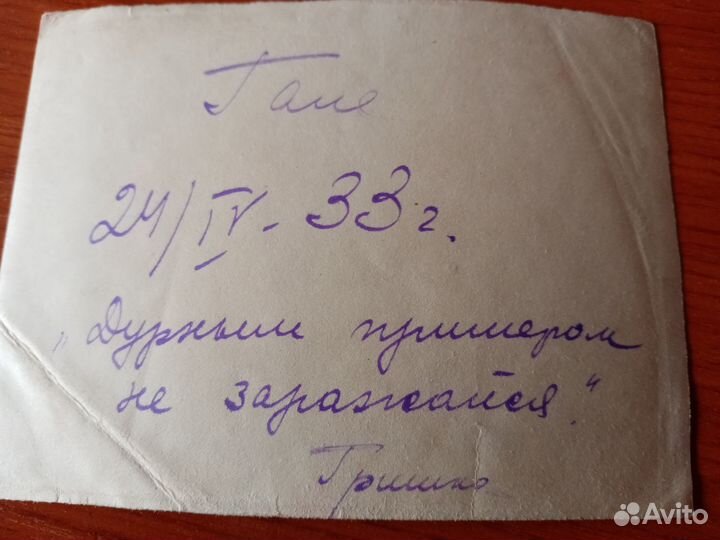 Гале
24/IV - 33 г.
„Дурным примером
не заражайся."
Гришка
Avito